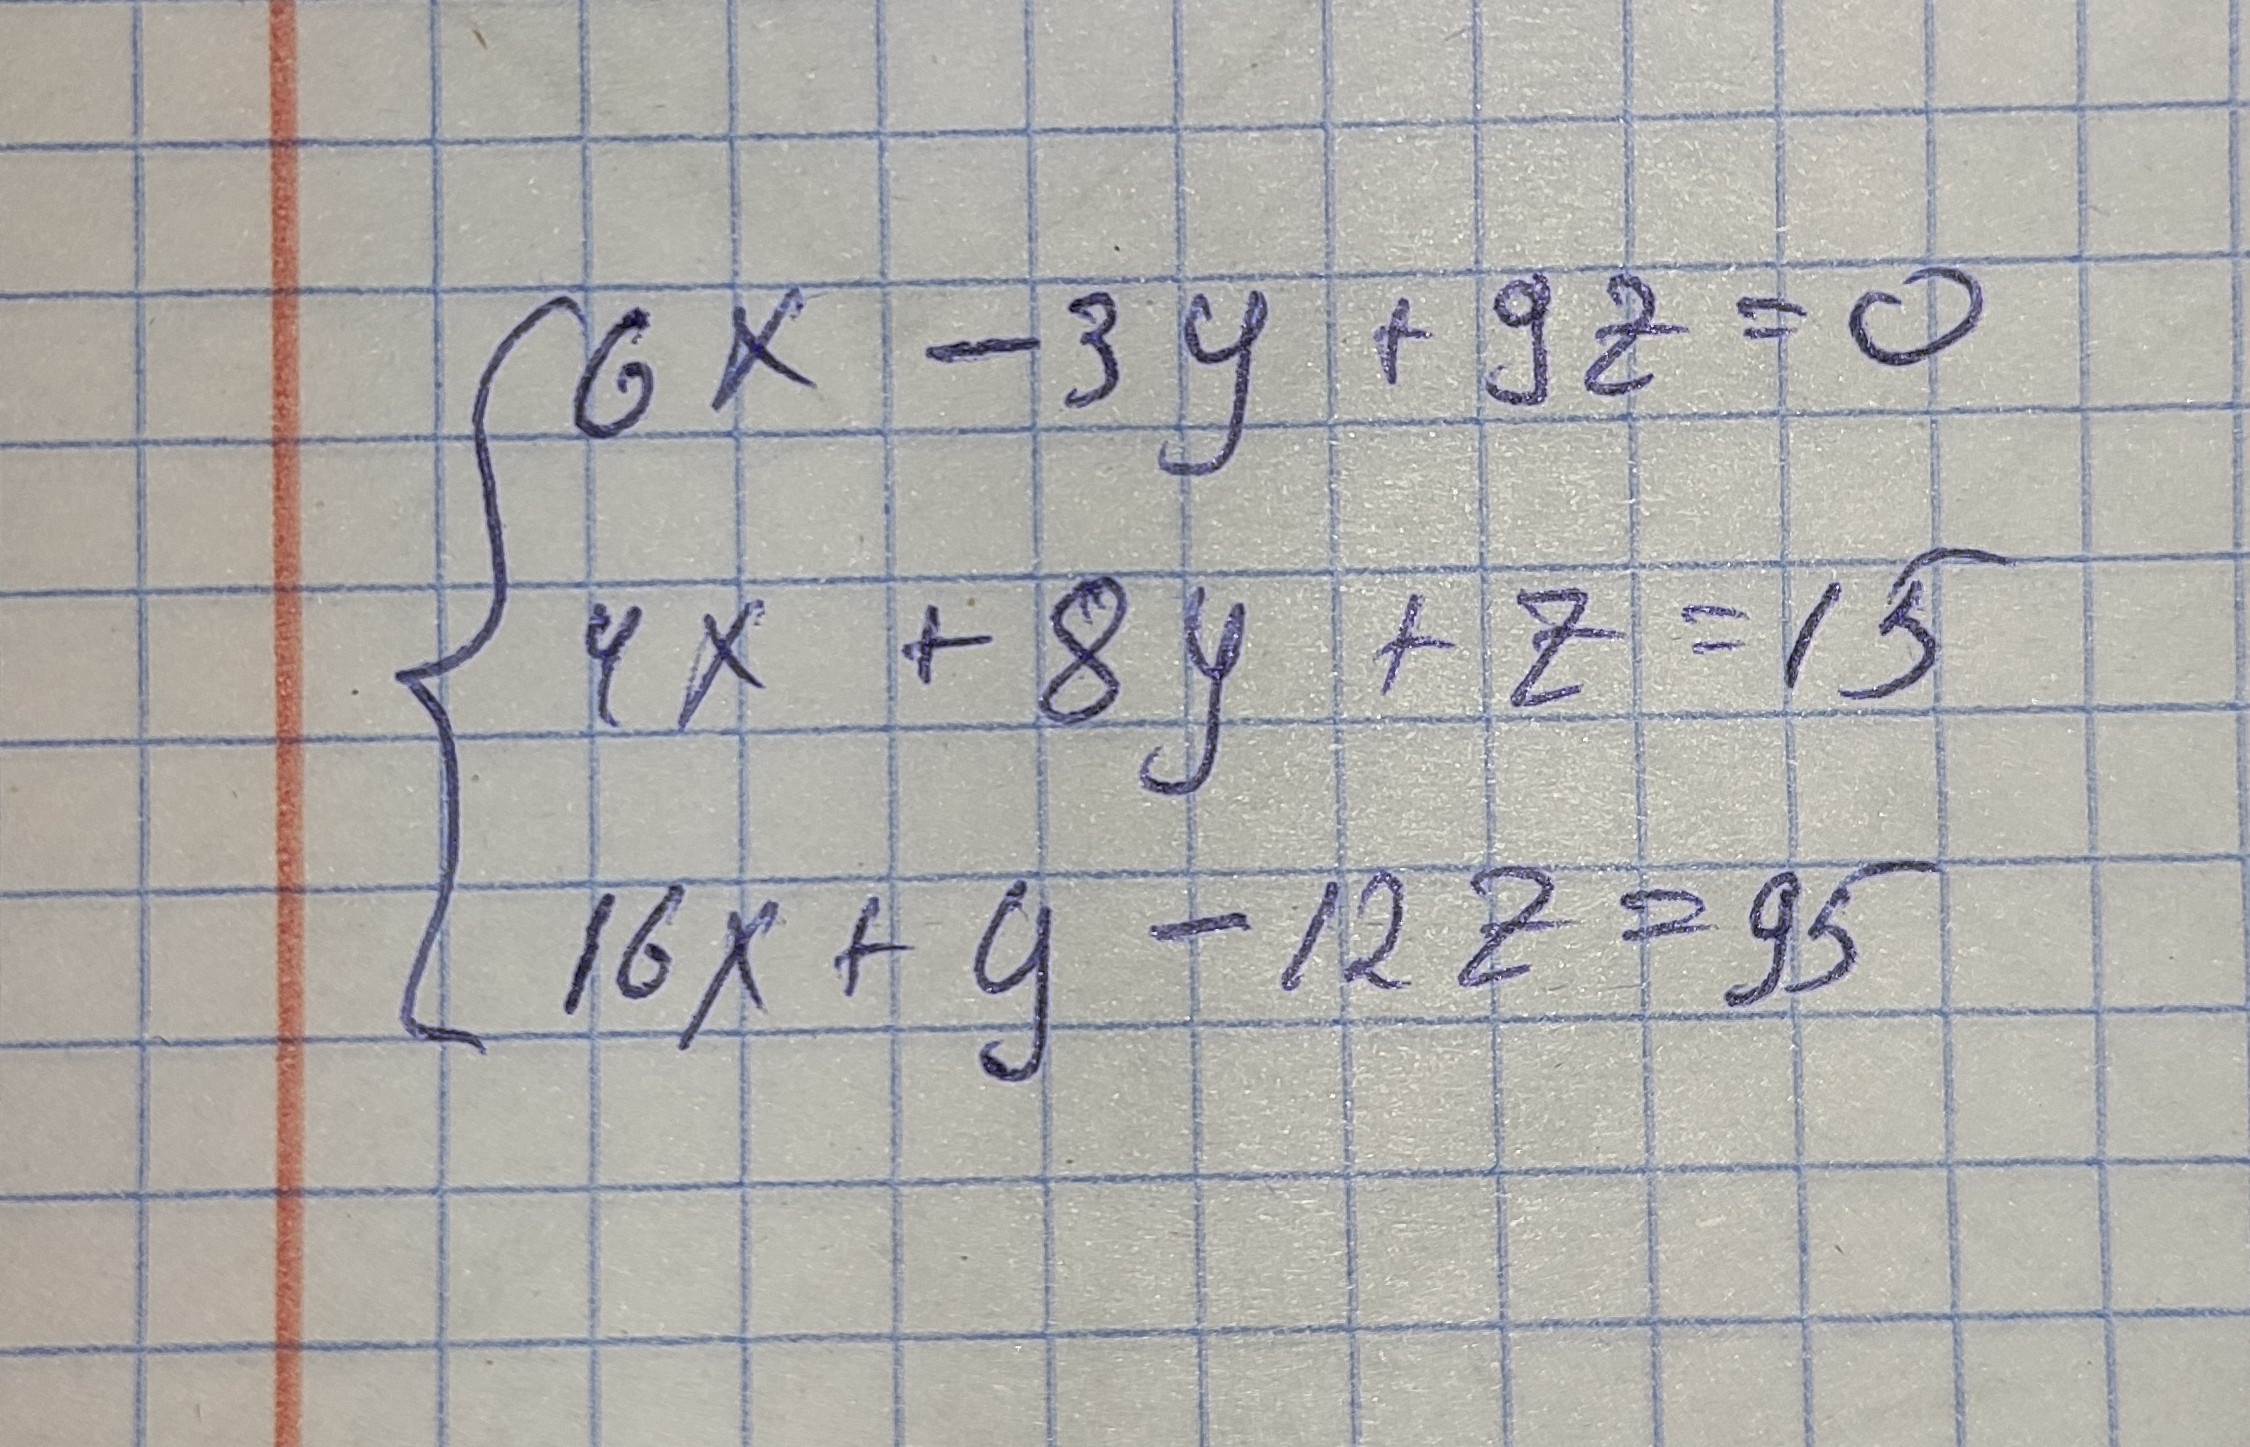 6x - 3y + 9z = 0
4x + 8y + z = 15
16x + y - 12z = 95